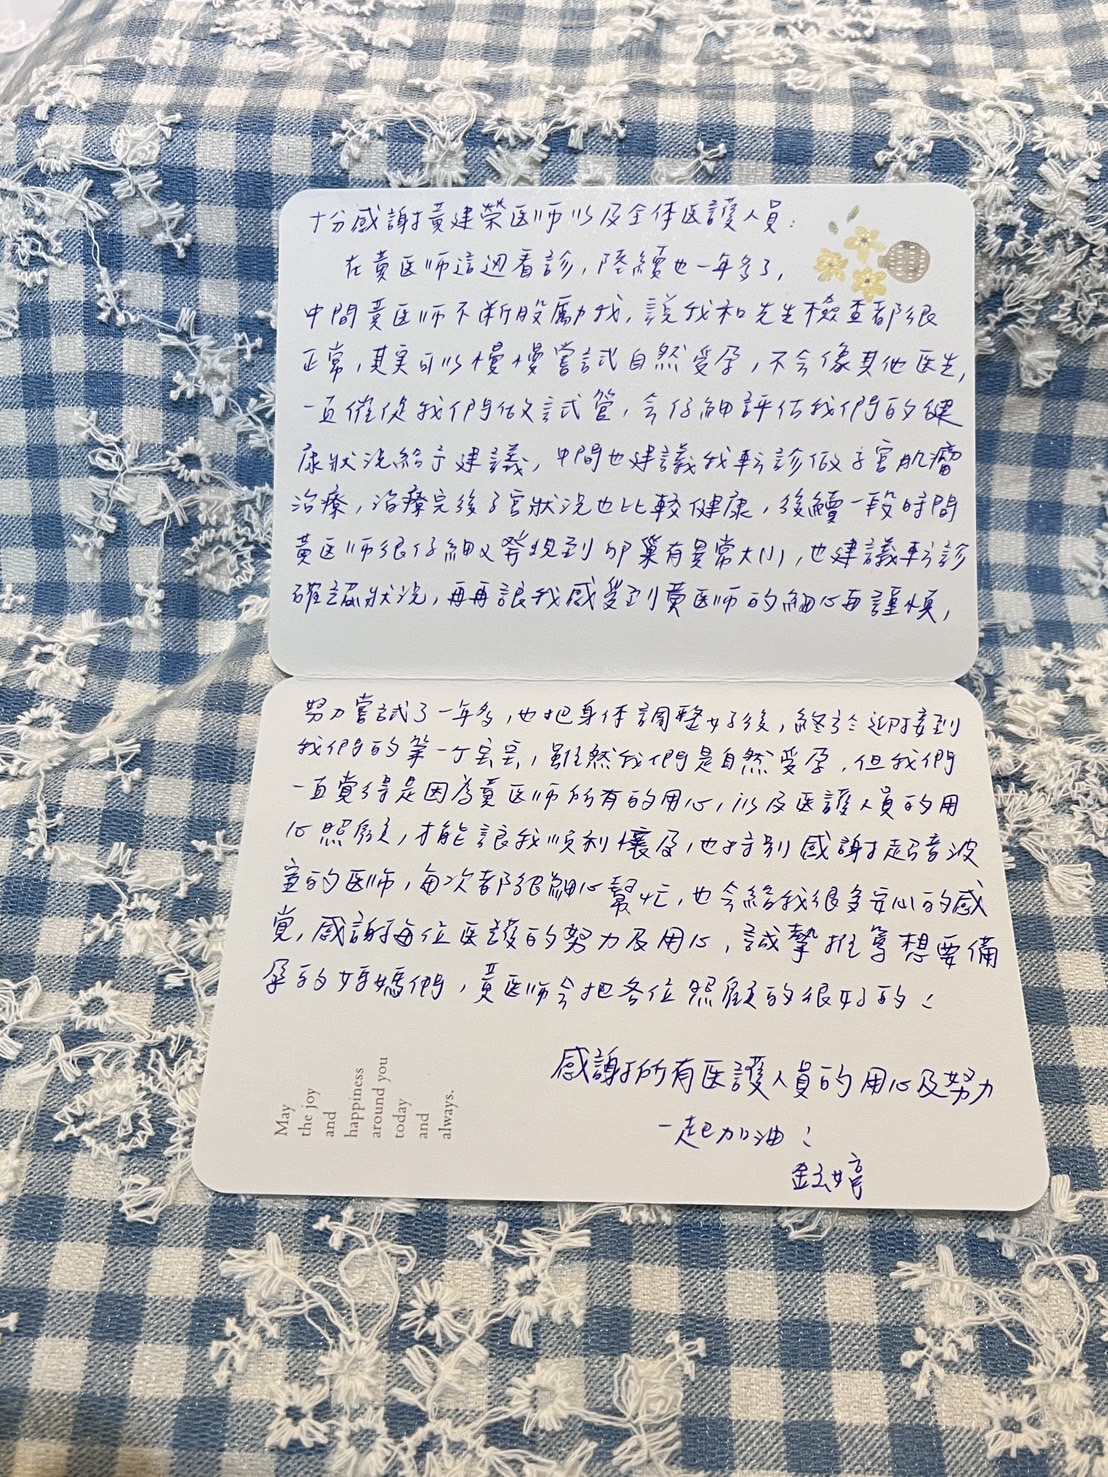 十分感謝黃建榮医师以及全体医護人員：
在黃医师這迴看診，陸續也一年多了，
中間黃医师不断股勵我，說我和先生檢查都很
正常，其实可以慢慢嘗試自然受孕，不会像其他医生，
一直催促我們做試管，会仔細評估我們的健
康狀況給予建議，中間也建議我転診做子宮肌瘤
治療，治療完後子宮狀況也比較健康，後續一段時間
黃医师很仔細又發現到卵巢有異常大小，也建議転診
確認狀況，再再讓我感受到黃医师的細心与謹慎，
努力嘗試了一年多，也把身体調整好後，終於迎接到
我們的第一个宝宝，雖然我們是自然受孕，但我們
一直覚得是因為黃医师所有的用心，以及医護人員的用
心照顧，才能讓我順利懷孕，也特別感謝超音波
室的医师，每次都很細心幫忙，也会給我很多安心的感
覚，感謝每位医護的努力及用心，誠摯推薦想要備
孕的媽媽們，黃医师会把各位照顧的很好的！
感謝所有医護人員的用心及努力
一起加油！
鈺婷
May
the joy
and
happiness
around you
today
and
always.